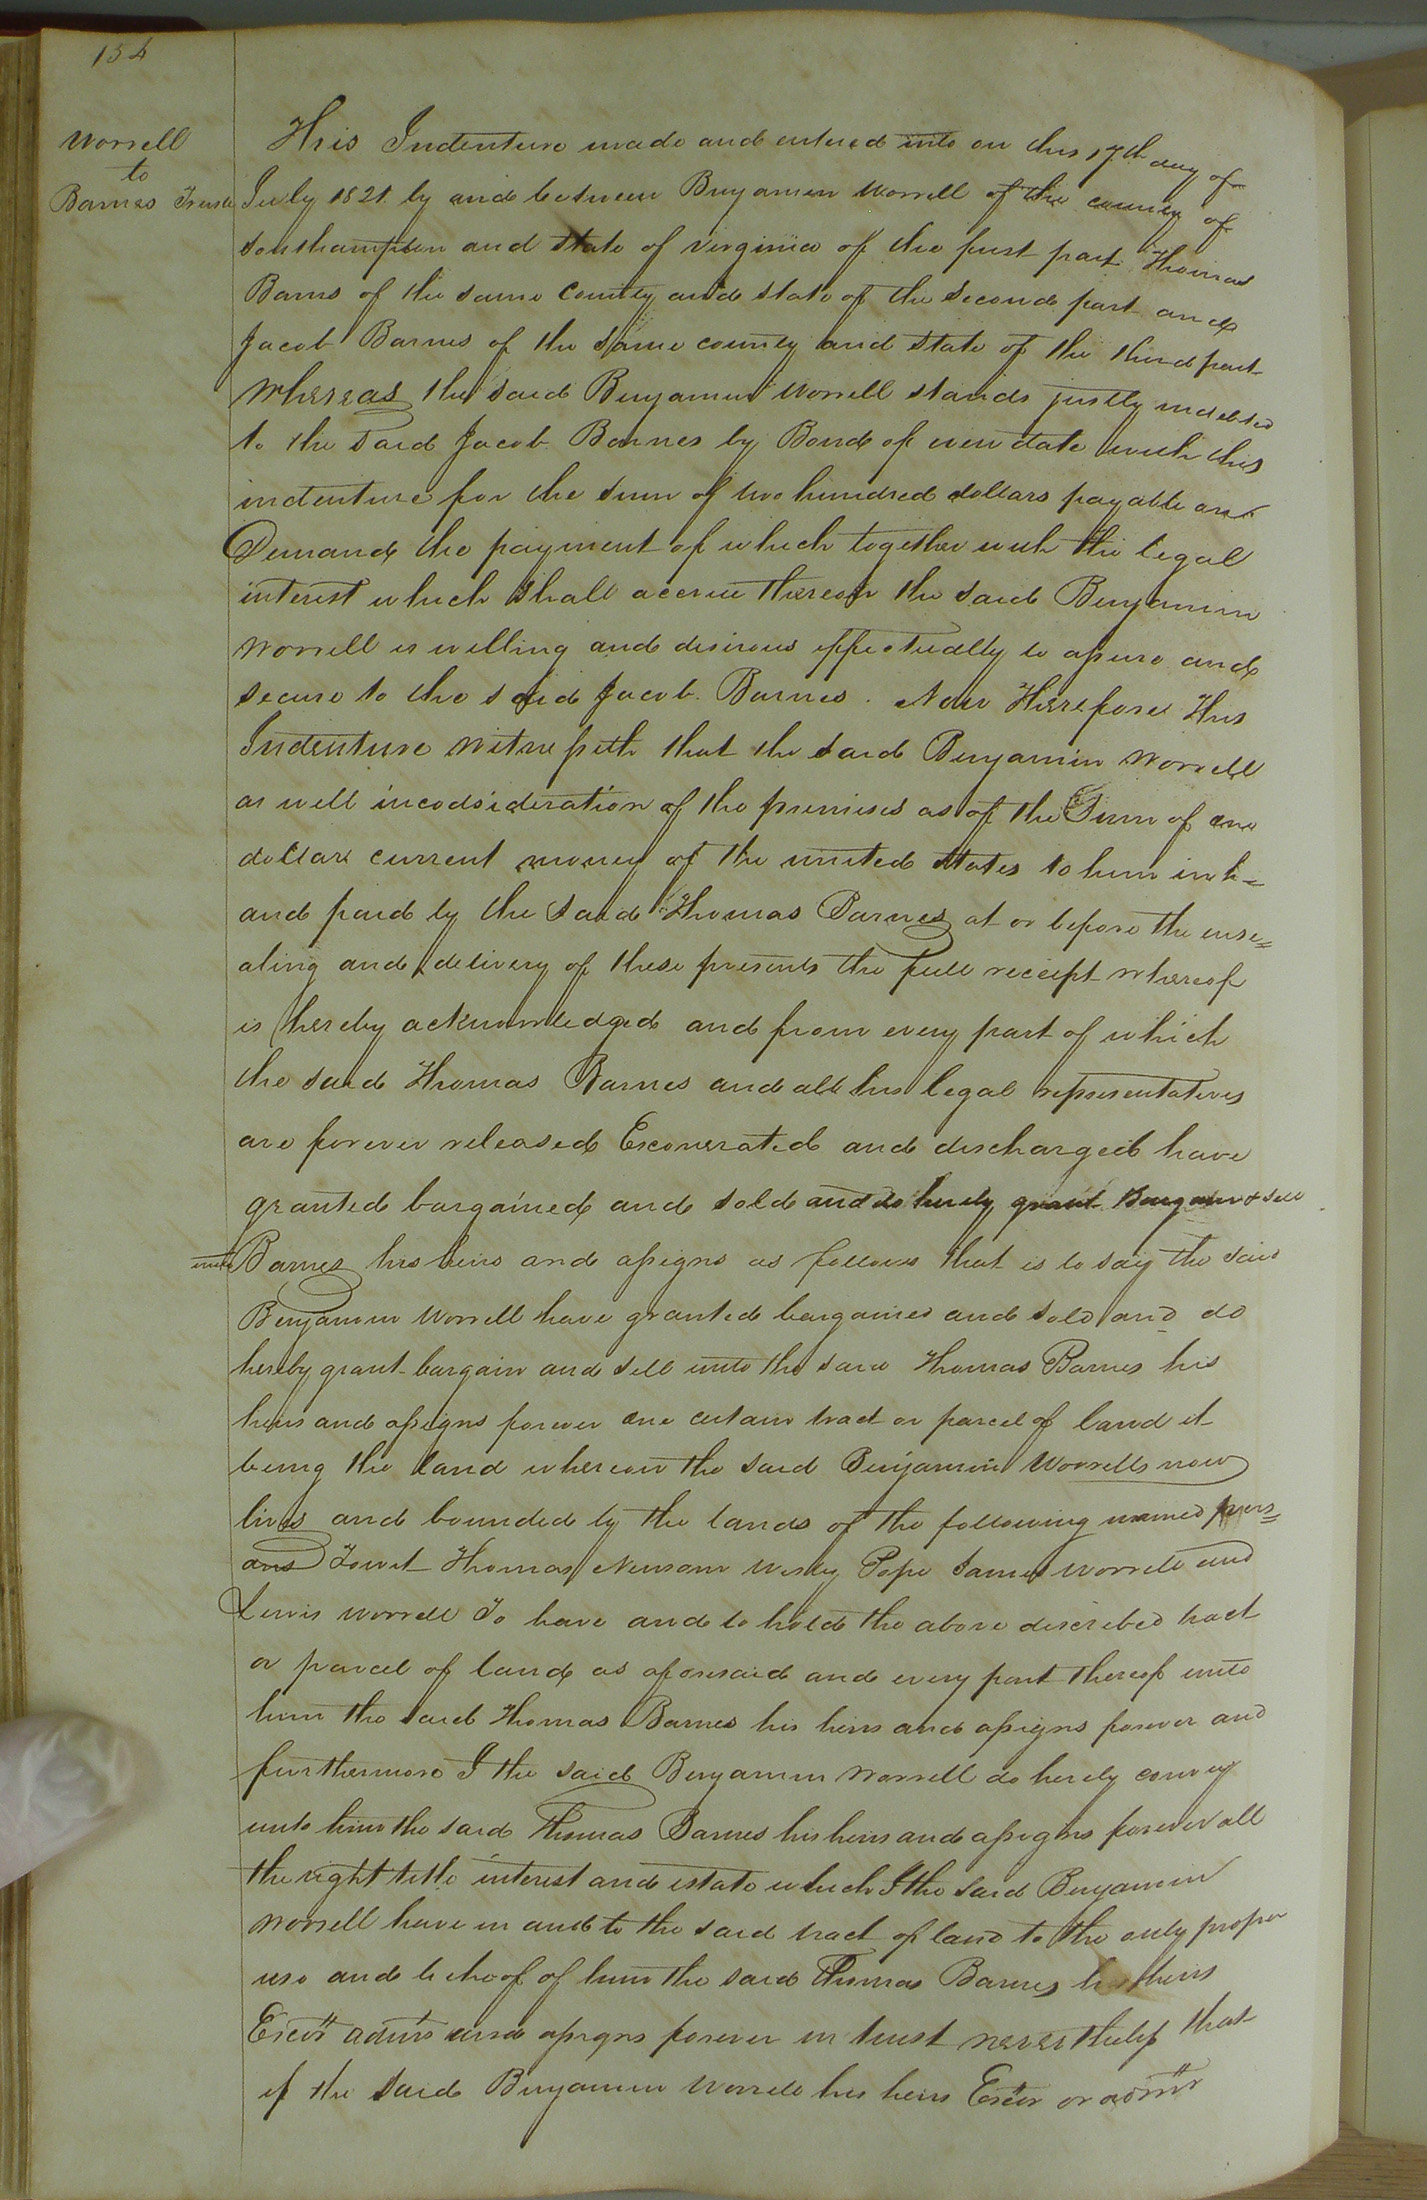 134
Worrell
to
Barnes Trustee
This Indenture made and entered into on this 17th day of
July 1821 by and between Benjamin Worrell of the county of
Southampton and state of Virginia of the first part Thomas
Barns of the same County and state of the second part and
Jacob Barnes of the same county and state of the third part
Whereas the said Benjamin Worrell stands justly indebted
to the said Jacob Barnes by Bond of even date with this
indenture for the sum of two hundred dollars payable on
Demand the payment of which together with the legal
interest which shall accrue thereon the said Benjamin
Worrell is willing and desirous effectually to assure and
secure to the said Jacob Barnes. Now Therefore This
Indenture Witnesseth that the said Benjamin Worrell
as well incodsideration of the premises as of the Sum of one
dollar current money of the united states to him in h=
and paid by the said Thomas Barnes at or before the ense=
aling and delivery of these presents the full receipt whereof
is hereby acknowledged and from every part of which
the said Thomas Barnes and all his legal representatives
are forever released Exonerated and discharged have
granted bargained and sold and do hereby grant Bargain & sell
unto Barnes his heirs and assigns as follows that is to say the said
Benjamin Worrell have granted bargained and sold and do
hereby grant bargain and sell unto the said Thomas Barnes his
heirs and assigns forever one certain tract or parcel of land it
being the land whereon the said Benjamin Worrells now
lives and bounded by the lands of the following named pers=
ons Towit Thomas Newsom Wesly Pope James Worrell and
Lewis Worrell To have and to hold the above described tract
or parcel of land as aforesaid and every part thereof unto
him the said Thomas Barnes his heirs and assigns forever and
furthermore I the said Benjamin Worrell do hereby convey
unto him the said Thomas Barnes his heirs and assigns forever all
the right title interest and estate which I the said Benjamin
Worrell have in and to the said tract of land to the only proper
use and behoof of him the said Thomas Barnes his heirs
Exors admrs and assigns forever in trust nevertheless that
if the said Benjamin Worrell his heirs Exors or admrs